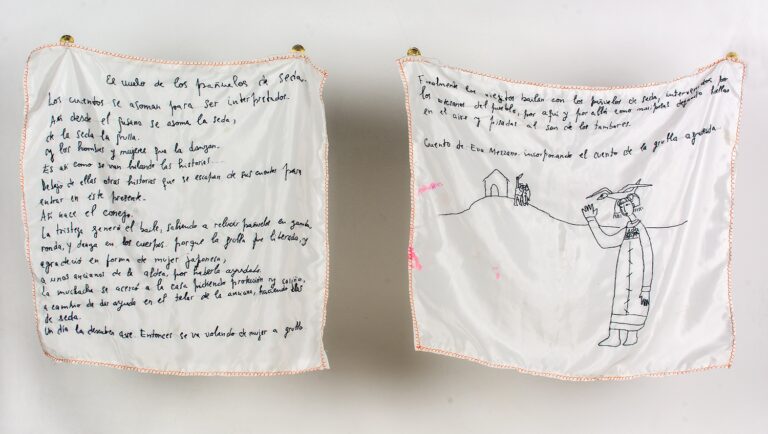 El vuelo de los pañuelos de seda.
Los cuentos se asoman para ser interpretados.
Así desde el gusano se asoma la seda,
de la seda la grulla.
y los hombres y mujeres que la danzan.
Es así como se van hilando las historias....
Debajo de ellas otras historias que se escapan de sus cuentos para
entrar en este presente.
Así nace el conejo.
La tristeza generó el baile, saliendo a relucir pañuelos en
ronda, y danza en los cuerpos. porque la grulla fue liberada, y
agradeció en forma de mujer japonesa,
a unos ancianos de la aldea, por haberla ayudado.
La muchacha se acercó a la casa pidiendo protección y cariño,
a cambio de dar ayuda en el telar de la anciana, haciendo telas
de seda.
Un día la descubren ave. Entonces se va volando de mujer a grulla
Finalmente los viejitos bailan con los pañuelos de seda, intervenidos por
los artesanos del pueblo, por aquí y por allá como mariposas dejando huellas
en el aire y pisadas al son de los tambores.
Cuento de Eva Morzano incorporando el cuento de la grulla agradecida.